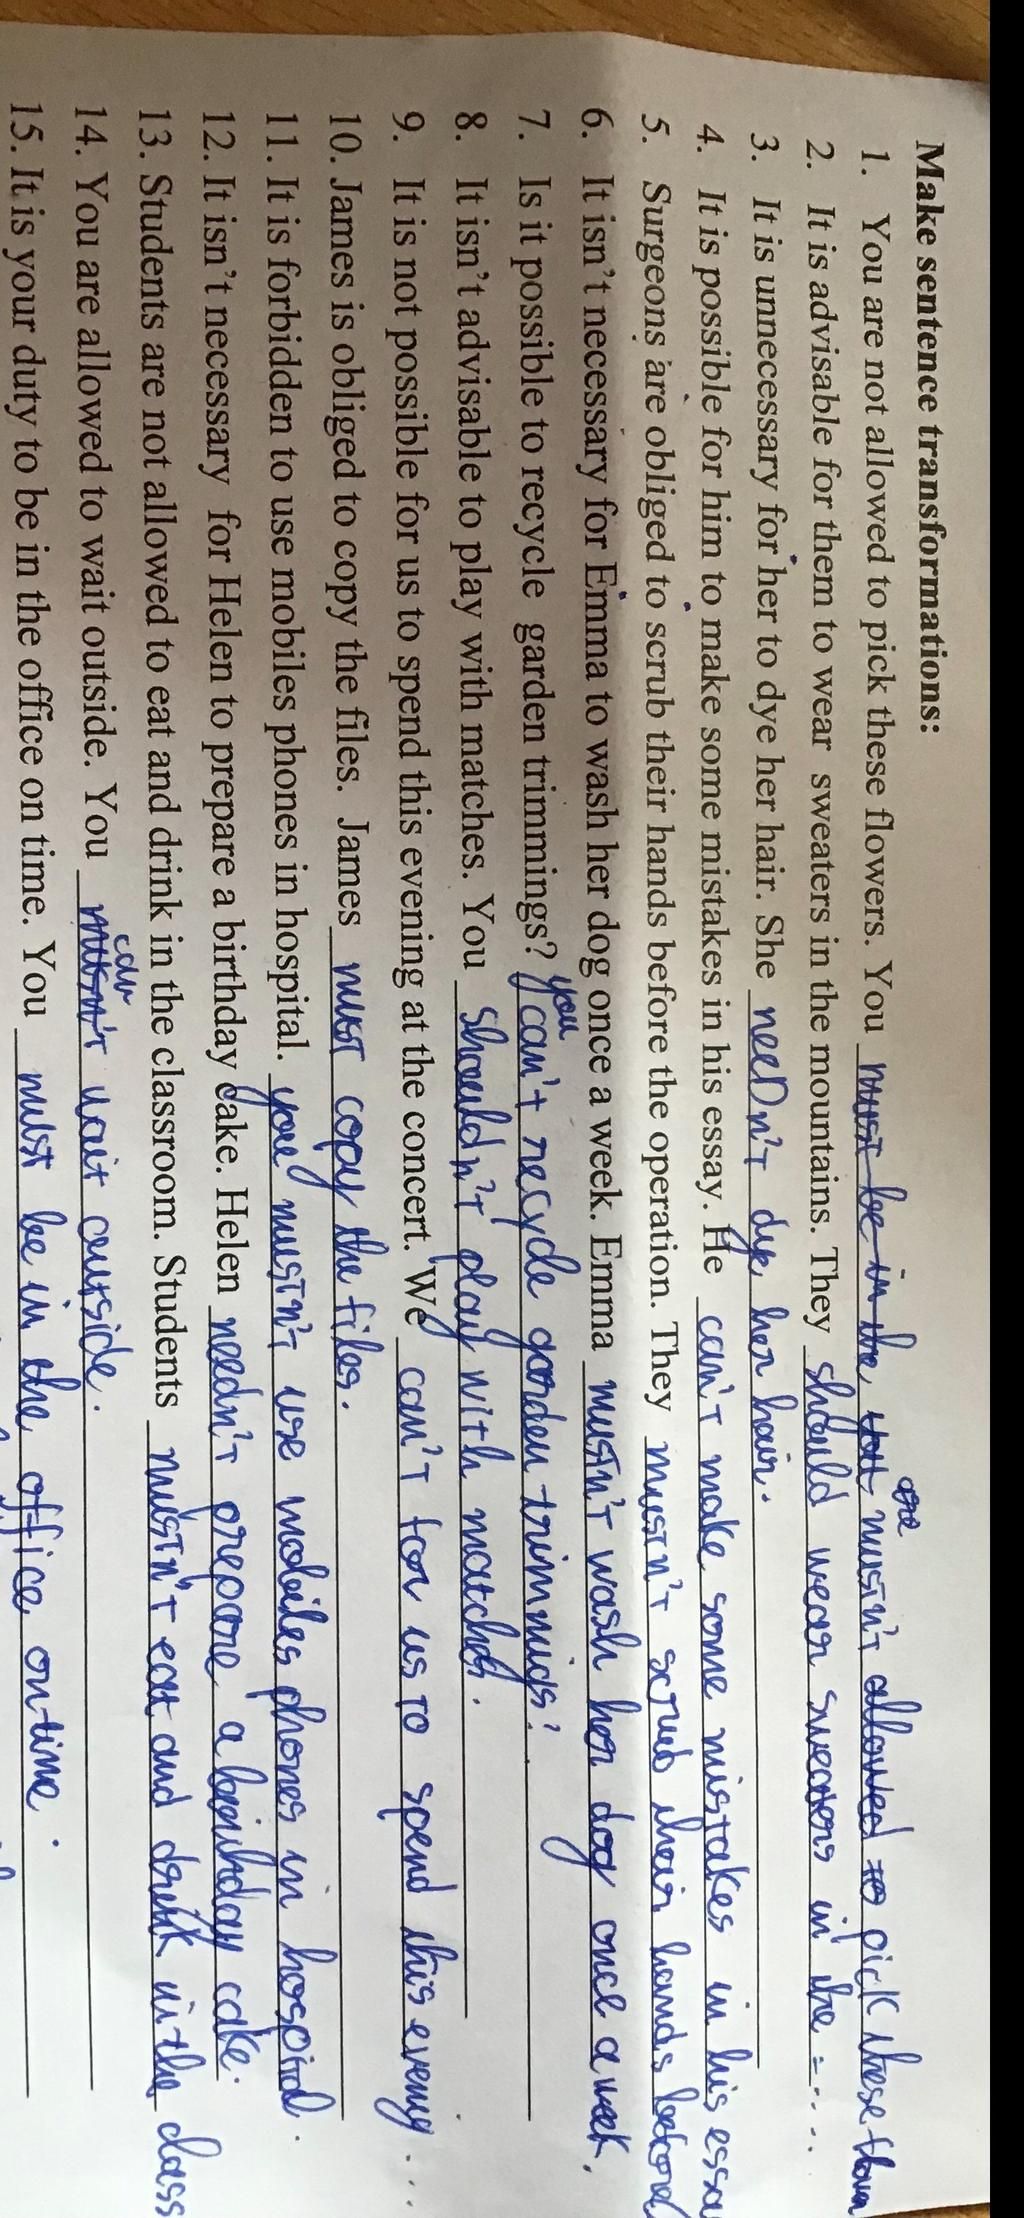 Make sentence transformations:
1. You are not allowed to pick these flowers. You must be in the are mustn't allowed to pick these flower
2. It is advisable for them to wear sweaters in the mountains. They should wear sweaters in the - ...
3. It is unnecessary for her to dye her hair. She needn't dye her hair.
4. It is possible for him to make some mistakes in his essay. He can't make some mistakes in his essa
5. Surgeons are obliged to scrub their hands before the operation. They mustn't scrub their hands before
6. It isn't necessary for Emma to wash her dog once a week. Emma mustn't wash her dog once a week.
7. Is it possible to recycle garden trimmings? you can't recycle garden trimmigs?
8. It isn't advisable to play with matches. You shouldn't play with matches.
9. It is not possible for us to spend this evening at the concert. We can't for us to spend this evenig ...
10. James is obliged to copy the files. James must copy the files.
11. It is forbidden to use mobiles phones in hospital. you mustn't use mobiles phones in hospital.
12. It isn't necessary for Helen to prepare a birthday cake. Helen needn't prepare a birhday cake.
13. Students are not allowed to eat and drink in the classroom. Students mustn't eat and drink in the class
14. You are allowed to wait outside. You mustn't can wait outside.
15. It is your duty to be in the office on time. You must be in the office on time.